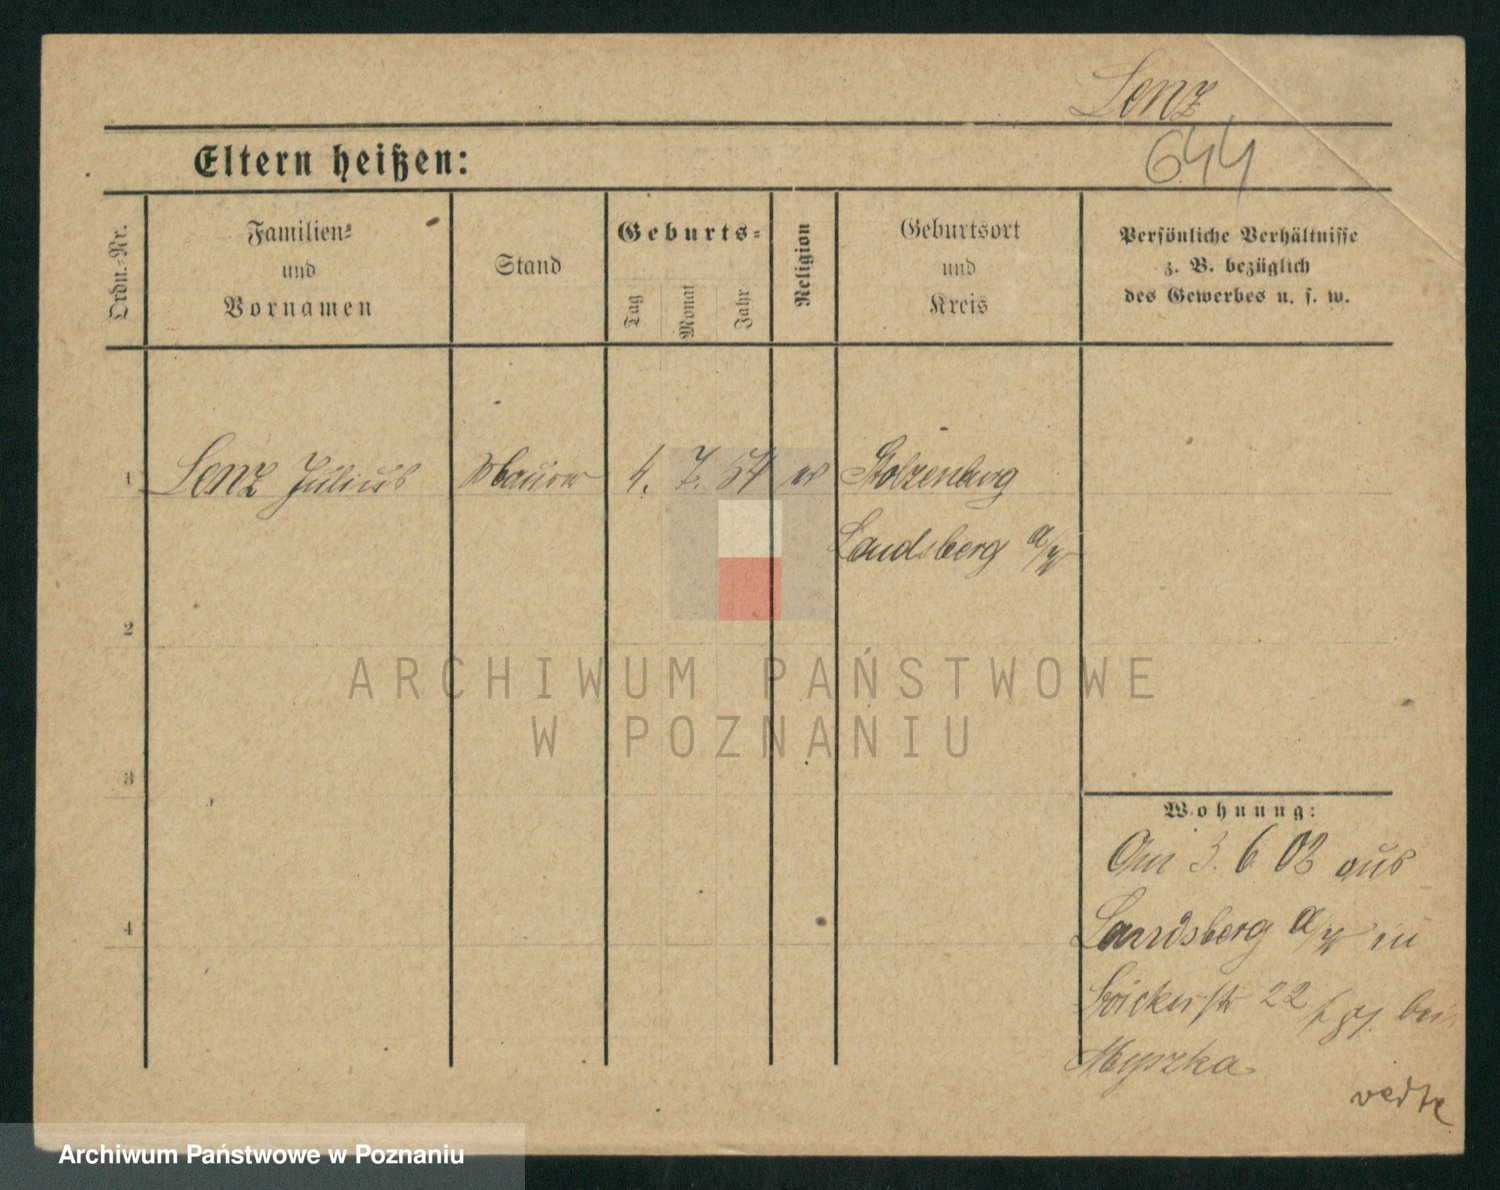 Lenz
644
Eltern heißen:
Ordn.-Nr.
Familien-
und
Vornamen
Stand
Geburts-
Tag
Monat
Jahr
Religion
Geburtsort
und
Kreis
Persönliche Verhältnisse
z. B. bezüglich
des Gewerbes u. s. w.
1 Lenz Julius 4. 7. 54 ev Stolzenberg
Landsberg a/W
2
ARCHIWUM PAŃSTWOWE
W POZNANIU
3
Wohnung:
Am 3. 6 02 aus
4
Landsberg a/W in
22 bei
Myszka
Archiwum Państwowe w Poznaniu